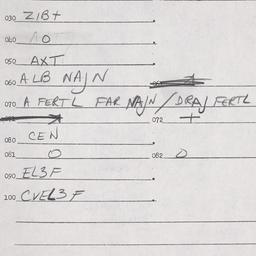 030 ZIBT
040
050 AXT
060 ALB NAJN
070 A FERTL FAR NAJN / DRAJ FERTL
072 +
080 CEN
081 0 082 0
090 EL3F
100 CVEL3F